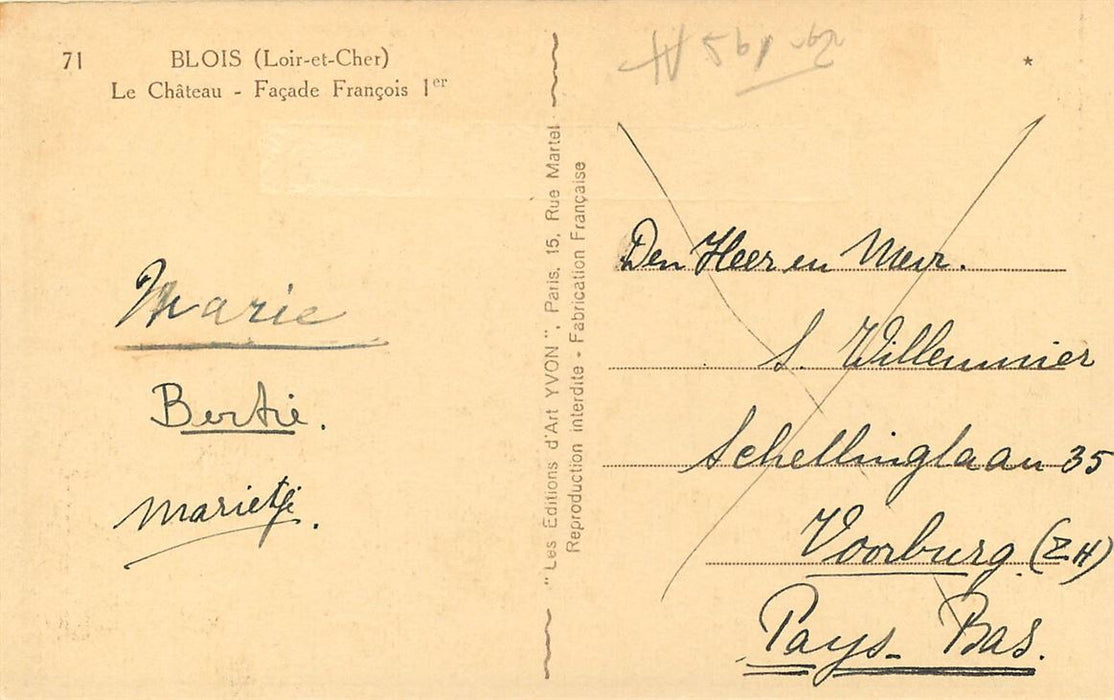 71 BLOIS (Loir-et-Cher)
Le Château - Façade François 1er
Marie
Bertie.
Marietje.
"Les Editions d'Art YVON", Paris, 15, Rue Martel
Reproduction interdite - Fabrication Française
*
Den Heer en Mevr.
S. Willemmier
Schellinglaan 35
Voorburg (ZH)
Pays-Bas.